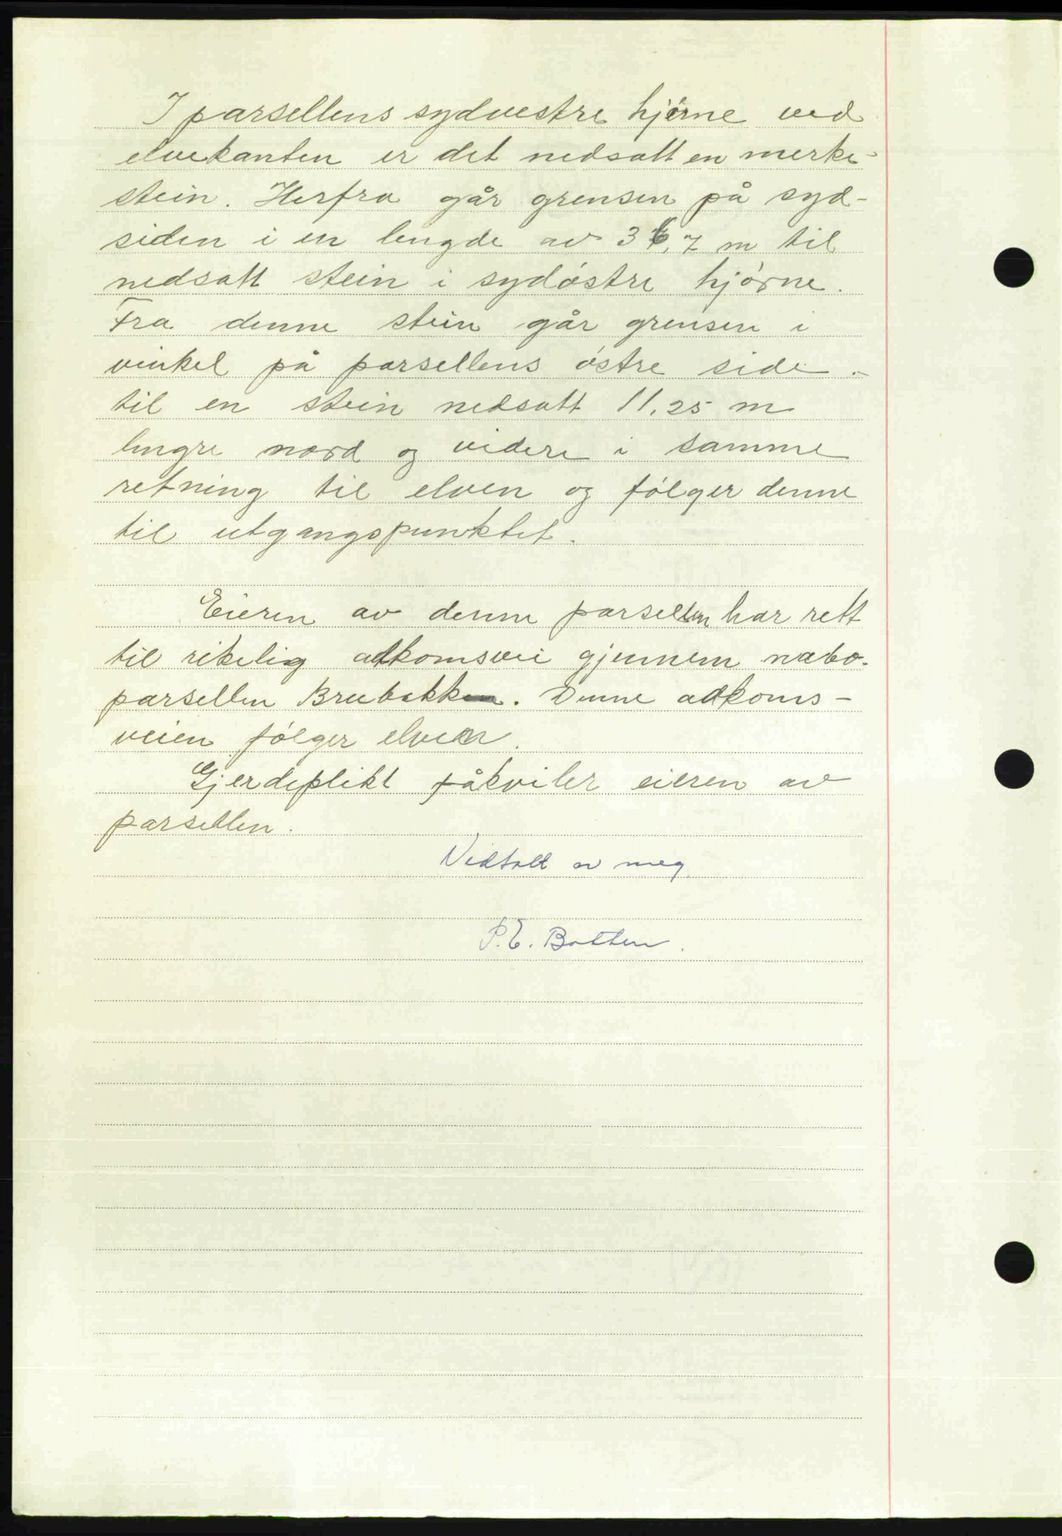 I parsellens sydvestre hjørne ved
elvekanten er det nedsatt en merke-
stein. Herfra går grensen på syd-
siden i en lengde av 36,7 m til
nedsatt stein i sydøstre hjørne.
Fra denne stein går grensen i
vinkel på parsellens østre side -
til en stein nedsatt 11,25 m
lengre nord og videre i samme
retning til elven og følger denne
til utgangspunktet.
Eieren av denne parsellen har rett
til rikelig adkomsvei gjennem nabo-
parsellen Brubakken. Denne adkoms-
veien følger elven.
Gjerdeplikt påkviler eieren av
parsellen.
Vedtatt av meg
P.E. Botten.